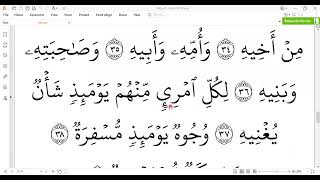 مِنۡ أَخِيهِ ٣٤ وَأُمِّهِۦ وَأَبِيهِ ٣٥ وَصَـٰحِبَتِهِۦ
وَبَنِيهِ ٣٦ لِكُلِّ ٱمۡرِيٕٖ مِّنۡهُمۡ يَوۡمَئِذٖ شَأۡنٞ
يُغۡنِيهِ ٣٧ وُجُوهٞ يَوۡمَئِذٖ مُّسۡفِرَةٞ ٣٨